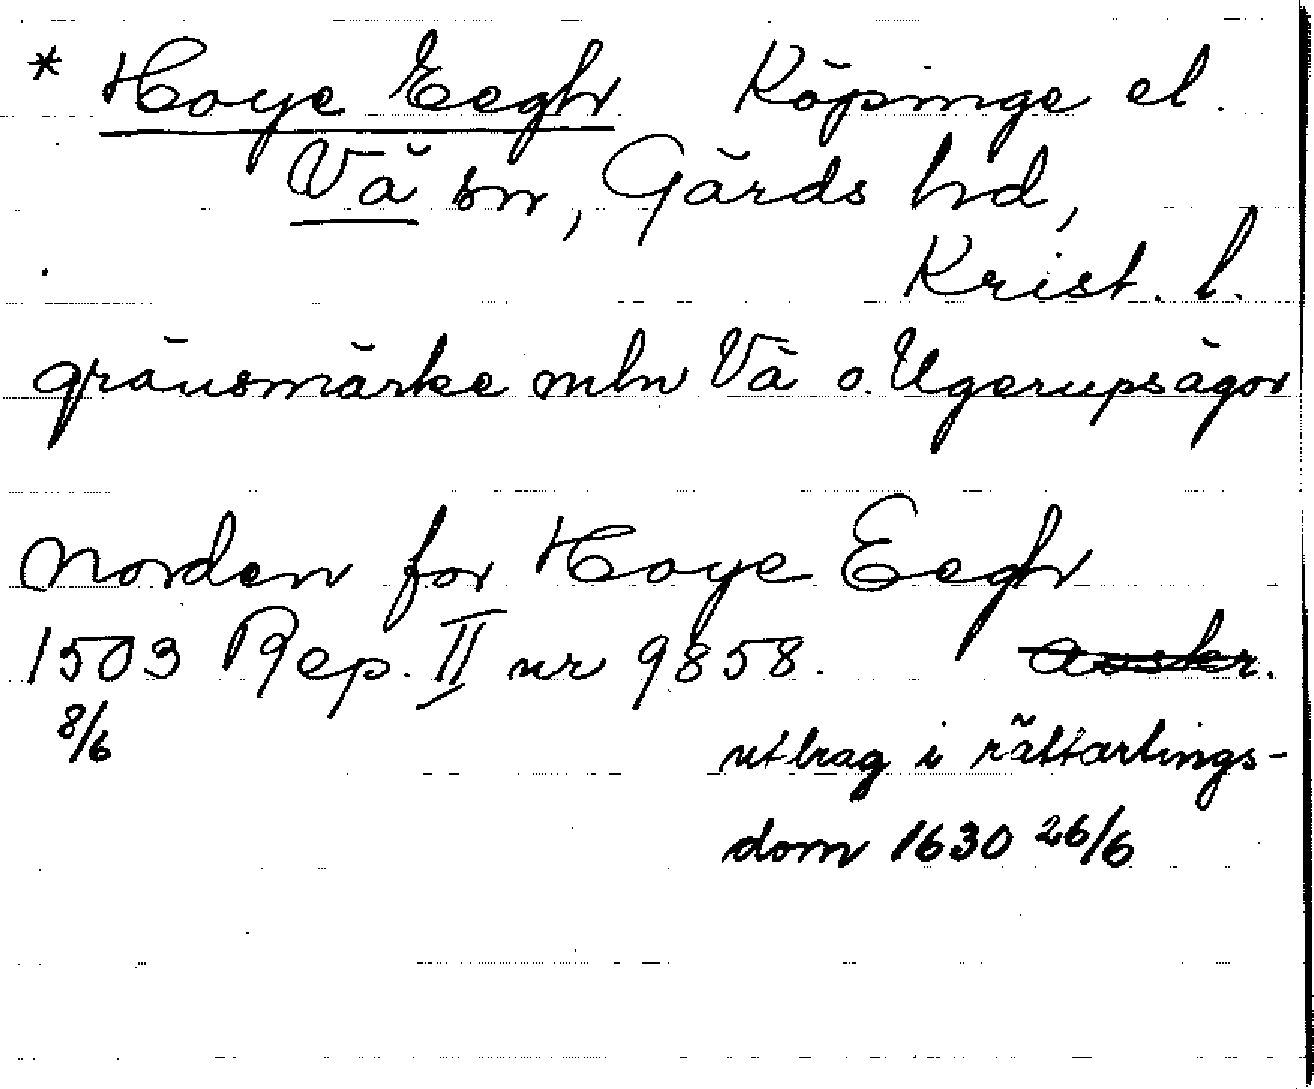 * Hoye Eegh Köpinge el.
Vä sn, Gärds hd,
Krist. l.
gränsmärke mln Vä o. Ugerupsägor
norden for Hoye Eegh
1503 Rep. II nr 9858. avskr.
8/6
utdrag i rättartings-
dom 1630 26/6